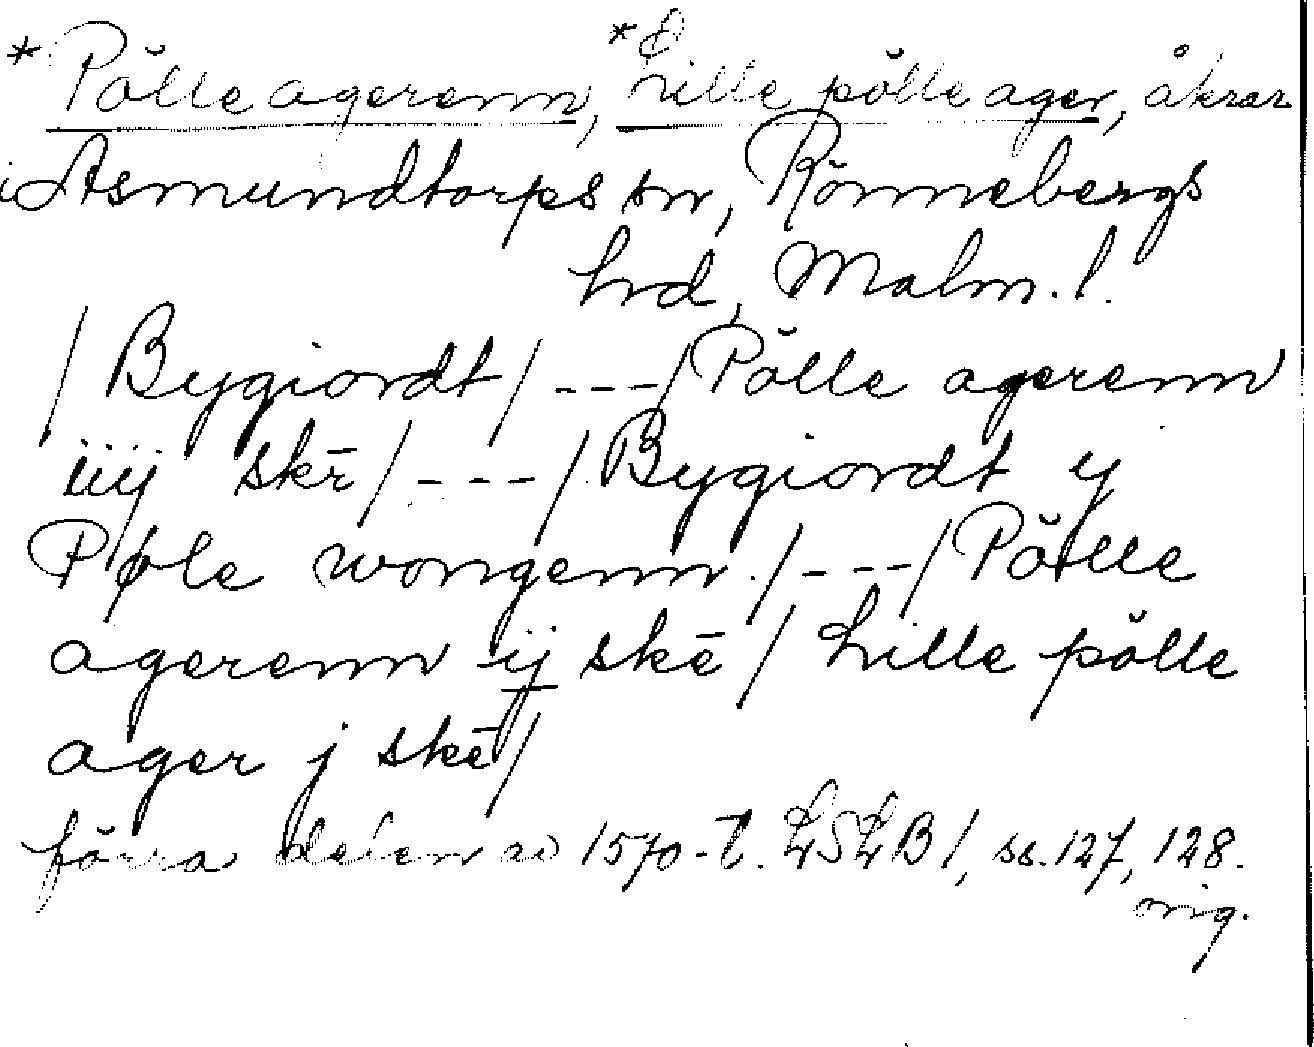 * Pŏlle agerenn, * Lille pŏlle ager, åkrar
i Asmundtorps sn, Rönnebergs
hrd, Malm. l.
/ Bygiordt / --- / Pŏlle agerenn
iiij skē / --- / Bygiordt y
Pøle wongenn. / --- / Pŏlle
agerenn ij skē / Lille pŏlle
ager j skē /
förra delen av 1570-t. LSLB 1, ss. 127, 128.
orig.